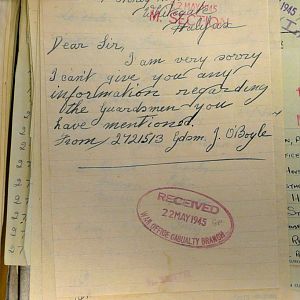 Halifax
22 MAY 1945
M. SECTION
Dear Sir,
I am very sorry
I can't give you any
information regarding
the guardsmen you
have mentioned.
From 2721513 Gdsm. J. O'Boyle
RECEIVED
22 MAY 1945
WAR OFFICE CASUALTY BRANCH
1945